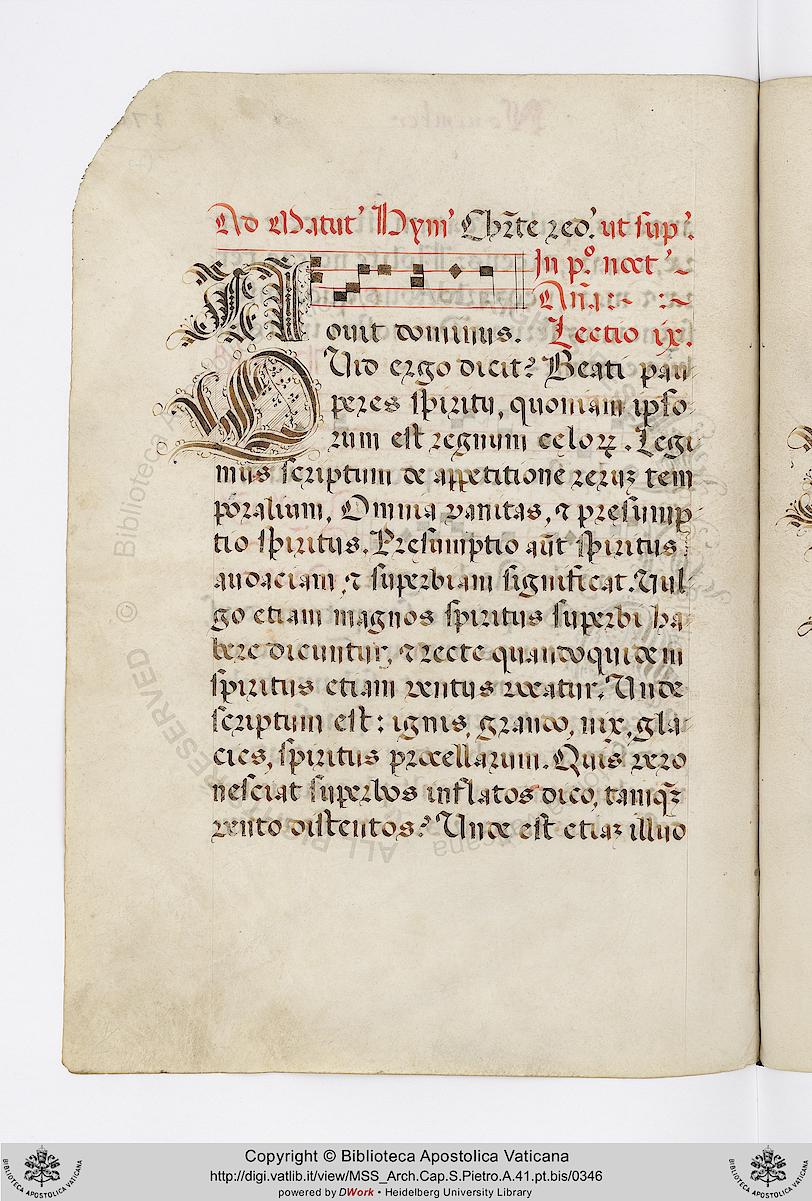 Ad Matut' Hym' Chr̄te red.' ut sup'.
In p.º noct.'
Añ.a
Novit dominus. Lectio ix.
Quid ergo dicit? Beati pau
peres spiritu, quoniam ipso
rum est regnum celoꝝ. Legi
mus scriptum de appetitione reruꝫ tem
poralium, Omnia vanitas, ⁊ presump
tio spiritus. Presumptio aūt spiritus
audaciam, ⁊ superbiam significat. Vul
go etiam magnos spiritus superbi ha
bere dicuntur, ⁊ recte quandoquidem
spiritus etiam ventus vocatur. Unde
scriptum est: ignis, grando, nix, gla
cies, spiritus procellarum. Quis vero
nesciat superbos inflatos dico, tamqꝫ
vento distentos? Unde est etiaꝫ illud
© Biblioteca
ALL
RESERVED
Copyright © Biblioteca Apostolica Vaticana
http://digi.vatlib.it/view/MSS_Arch.Cap.S.Pietro.A.41.pt.bis/0346
powered by DWork • Heidelberg University Library
BIBLIOTECA APOSTOLICA VATICANA
BIBLIOTECA APOSTOLICA VATICANA